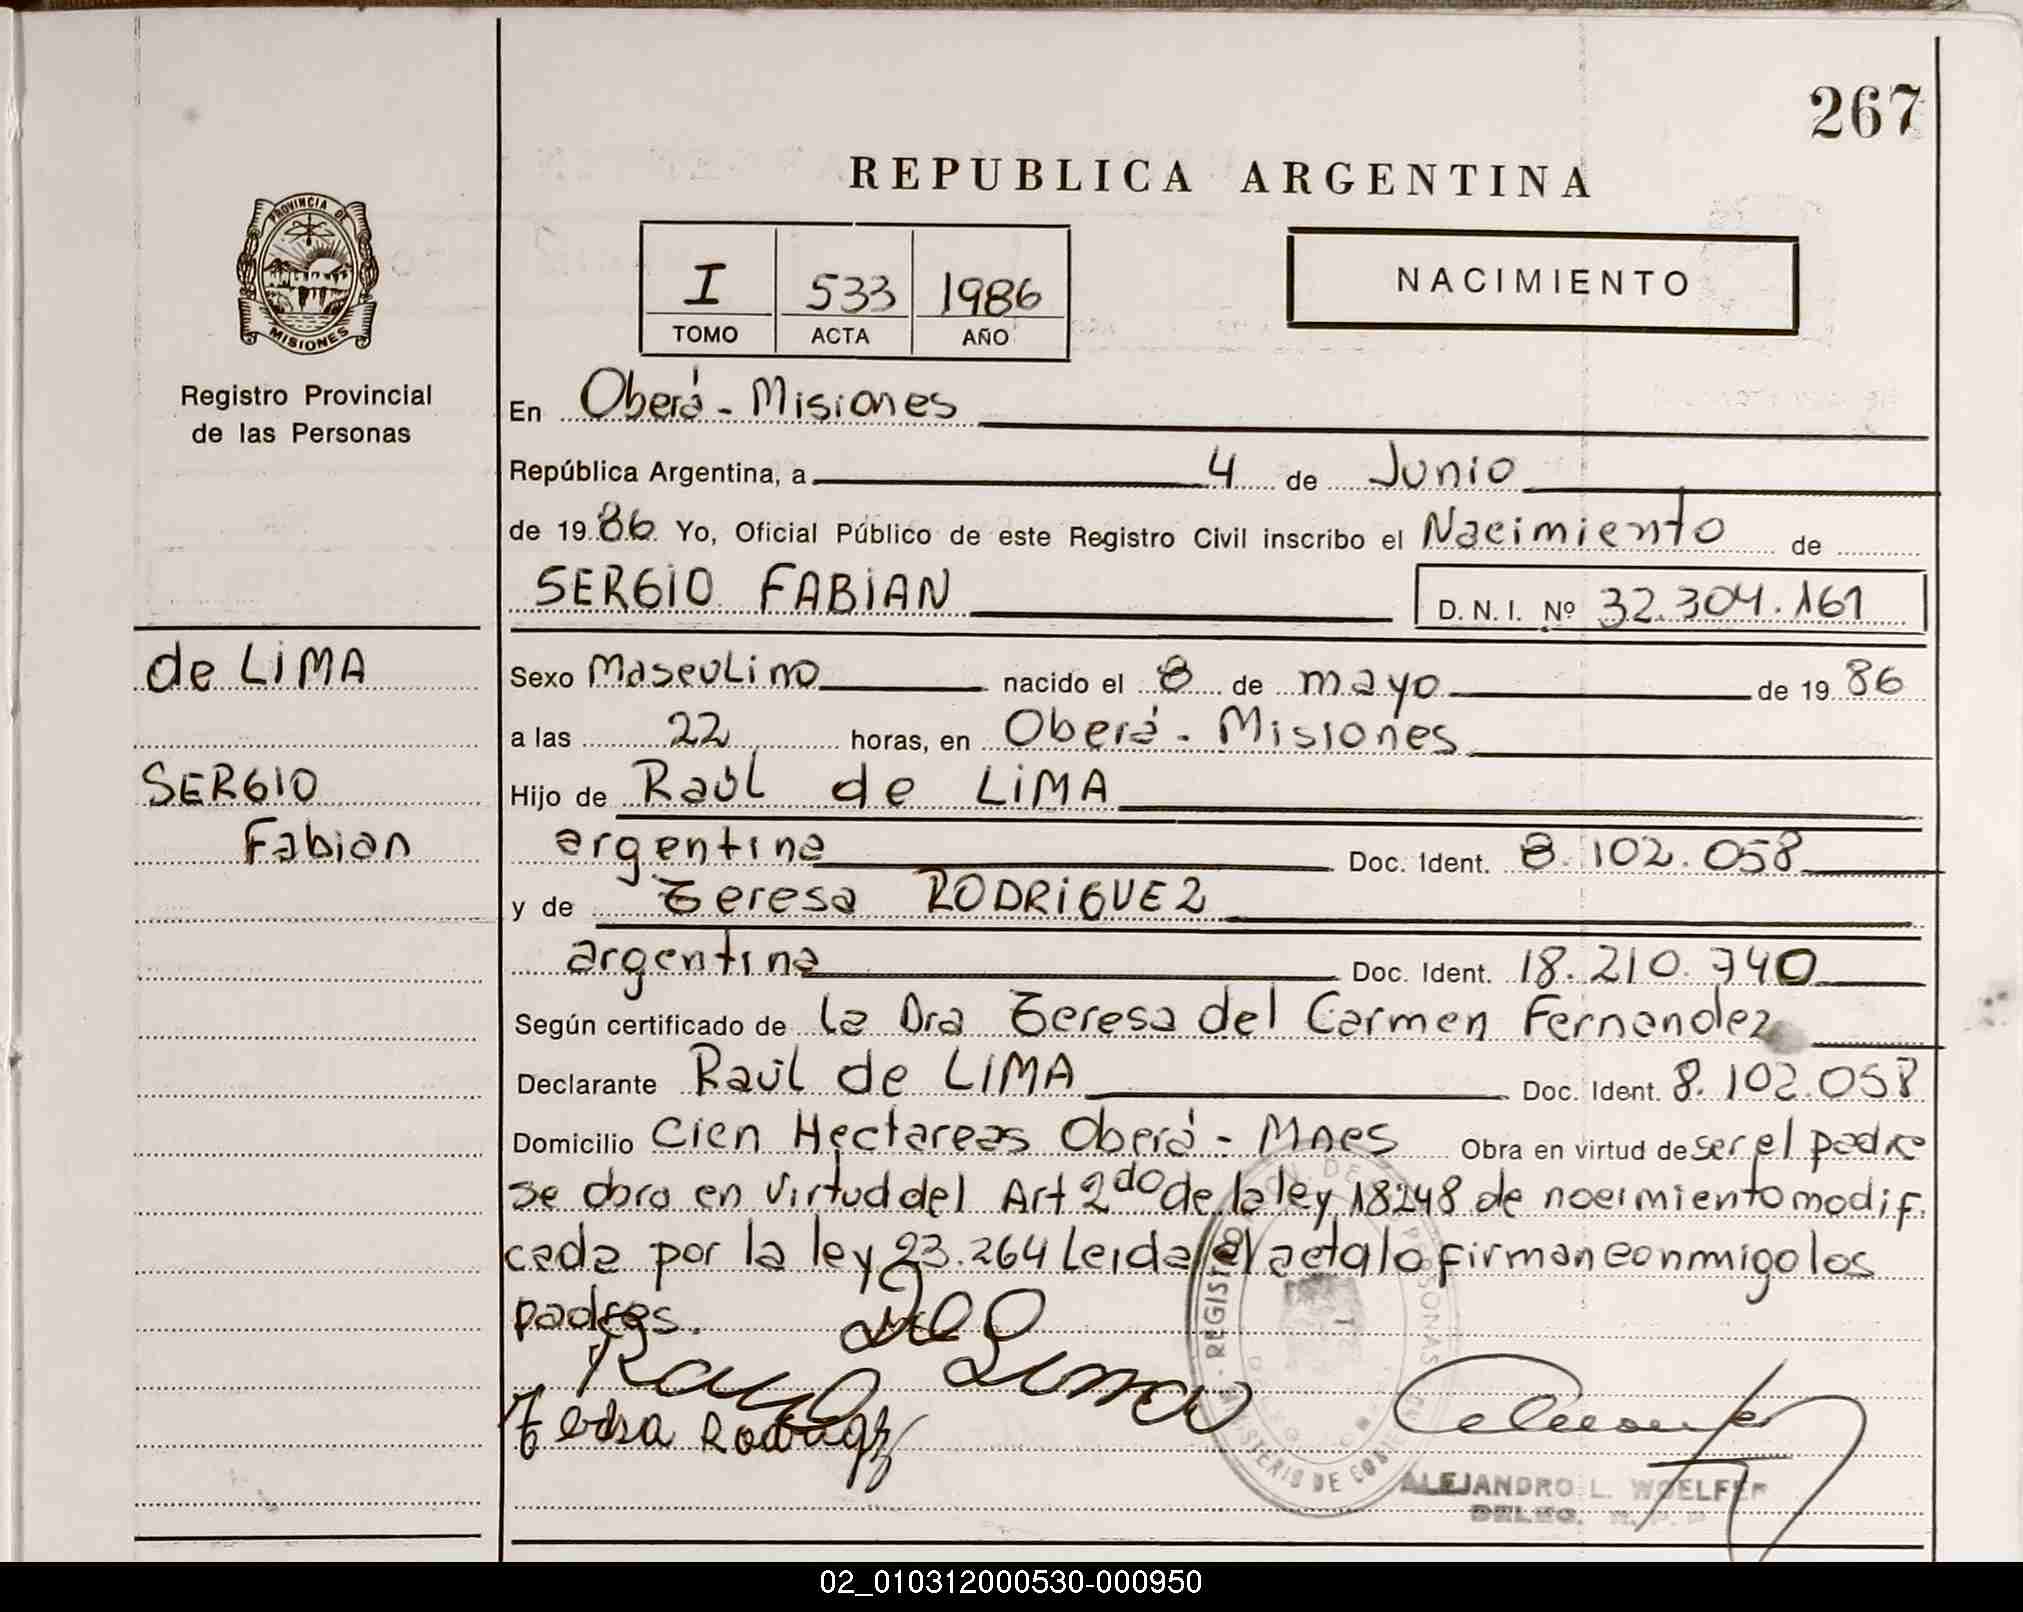 267
REPUBLICA ARGENTINA
PROVINCIA DE
MISIONES
I 533 1986
TOMO ACTA AÑO
NACIMIENTO
Registro Provincial
de las Personas
En Oberá - Misiones
República Argentina, a 4 de Junio
de 19 86 Yo, Oficial Público de este Registro Civil inscribo el Nacimiento de
SERGIO FABIAN D. N. I. Nº 32.304.161
de LIMA
SERGIO
Fabian
Sexo Masculino nacido el 8 de mayo de 19 86
a las 22 horas, en Oberá - Misiones
Hijo de Raúl de LIMA
argentina Doc. Ident. 8.102.058
y de Teresa RODRIGUEZ
argentina Doc. Ident. 18.210.740
Según certificado de la Dra Teresa del Carmen Fernandez
Declarante Raúl de LIMA Doc. Ident. 8.102.058
Domicilio Cien Hectareas Oberá - Mnes Obra en virtud de ser el padre
se obra en virtud del Art 2do de la ley 18248 de nacimiento modif.
cada por la ley 23.264 Leida el acta lo firman conmigo los
padres.
Raul de Lima
Teresa Rodriguez
REGISTRO PERSONAS
MINISTERIO DE GOBI
ALEJANDRO L. WOELFER
DELEG.
02_010312000530-000950